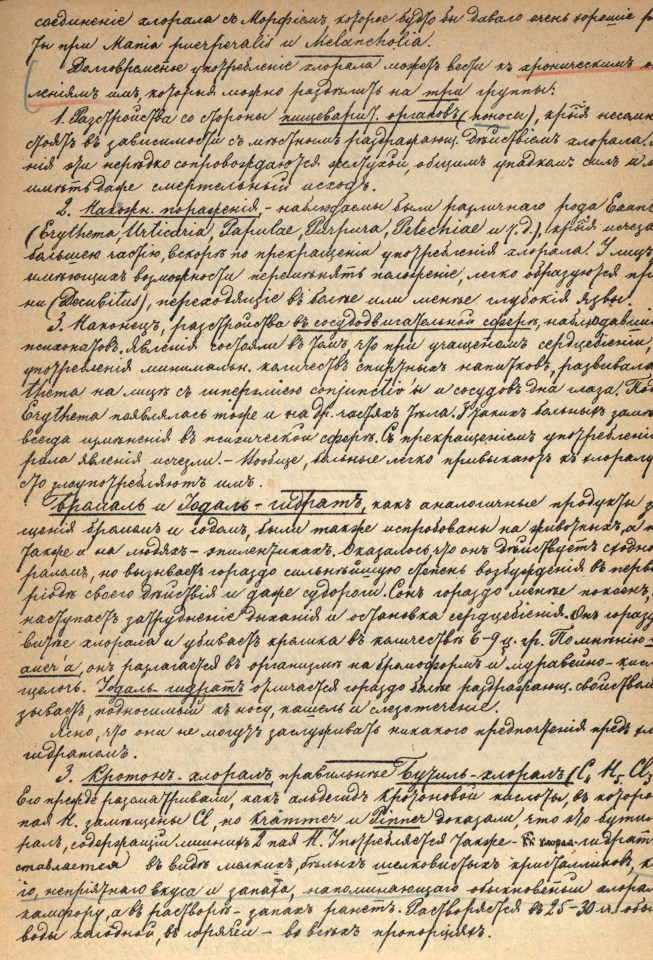 соединеніе хлорала съ Морфіемъ, которое будто бы давало очень хорошіе р
ты при Mania puerperalis и Melancholia.
Долговременное употребленіе хлорала можетъ вести къ хроническимъ о
леніямъ имъ, которыя можно раздѣлить на три группы:
1. Разстройства со стороны пищеварит. органовъ (поносы), кот͞рыя несомн
стоятъ въ зависимости съ мѣстнымъ раздражающ. дѣйствіемъ хлорала.
нія эти нерѣдко сопровождаются желтухой, общимъ упадкомъ силъ и м
имѣть даже смертельный исходъ.
2. Накожн. пораженія, - наблюдаемы были различнаго рода Exan
(Erythema, Urticaria, Papulae, Purpura, Petechiae и т.д.), исчеза
большею частію, вскорѣ по прекращеніи употребленія хлорала. У лицъ,
имѣющихъ возможности перемѣнять положеніе, легко образуются про
ни (Decubitus), переходящіе въ болѣе или менѣе глубокія язвы.
3. Наконецъ, разстройства въ сосудодвигательной сферѣ, наблюдавші
психопатовъ. Явленія состояли въ томъ, что при учащенномъ сердцебіеніи,
употребленія минимальн. количествъ спиртныхъ напитковъ, развивала
thema на лицѣ съ гиперэміею conjunctiv'ы и сосудовъ дна глаза. Под
Erythema появлялась тоже и на др. частяхъ тѣла. У такихъ больныхъ замѣ
всегда измѣненія въ психической сферѣ. Съ прекращеніемъ употребленія
рала явленія исчезли. - Вообще, больные легко привыкаютъ къ хлоралу
сто злоупотребляютъ имъ.
Бромаль и Іодаль-гидратъ, какъ аналогичные продукты
щенія бромомъ и іодомъ, были также испробованы на животныхъ, а
также и на людяхъ - эпилептикахъ. Оказалось, что онъ дѣйствуетъ сходно
раломъ, но вызываетъ гораздо сильнѣйшую степень возбужденія въ перв
ріодѣ своего дѣйствія и даже судороги. Сонъ гораздо менѣе покоенъ,
наступаетъ затрудненіе дыханія и остановка сердцебіенія. Онъ горазд
витѣе хлорала и убиваетъ кролика въ количествѣ 6-9 ц. гр. По мнѣнію
онъ разлагается въ организмѣ на бромоформъ и муравейно-кис
щелочь. Іодаль-гидратъ отличается гораздо болѣе раздражающ. свойствам
зываетъ, подносимый къ носу, кашель и слезотеченіе.
Ясно, что они не могутъ заслуживать никакого предпочтенія предъ хл
гидратомъ.
3. Кротонъ-хлоралъ, правильнѣе Бутиль-хлоралъ (C₄ H₅ Cl₃
Его прежде разсматривали, какъ альдегидъ кротоновой кислоты, въ которо
пая H. замѣщены Cl, но Krämmer и Pinner доказали, что это бутил
ралъ, содержащій лишнихъ 2 пая H. Употребляется также - хлорал-гидрат
ставляется въ видѣ мелкихъ, бѣлыхъ шелковистыхъ кристалликовъ,
го, непріятнаго вкуса и запаха, напоминающаго обыкновенный хлорал
камфору, а въ растворѣ - запахъ ранетъ. Растворяется въ 25-30 ч. обы
воды холодной, въ горячей - во всѣхъ пропорціяхъ.